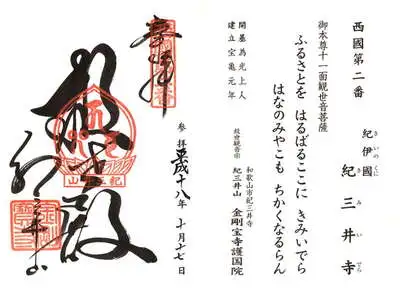 西國第二番
紀伊國 紀三井寺
きいのくに きみいでら
御本尊十一面観世音菩薩
ふるさとを はるばるここに きみいでら
はなのみやこも ちかくなるらん
開基為光上人
建立宝亀元年
和歌山市紀三井寺
救世観音宗 紀三井山 金剛宝寺護国院
参拝 平成十八年 十月十七日
奉拝
救世殿
紀三井寺